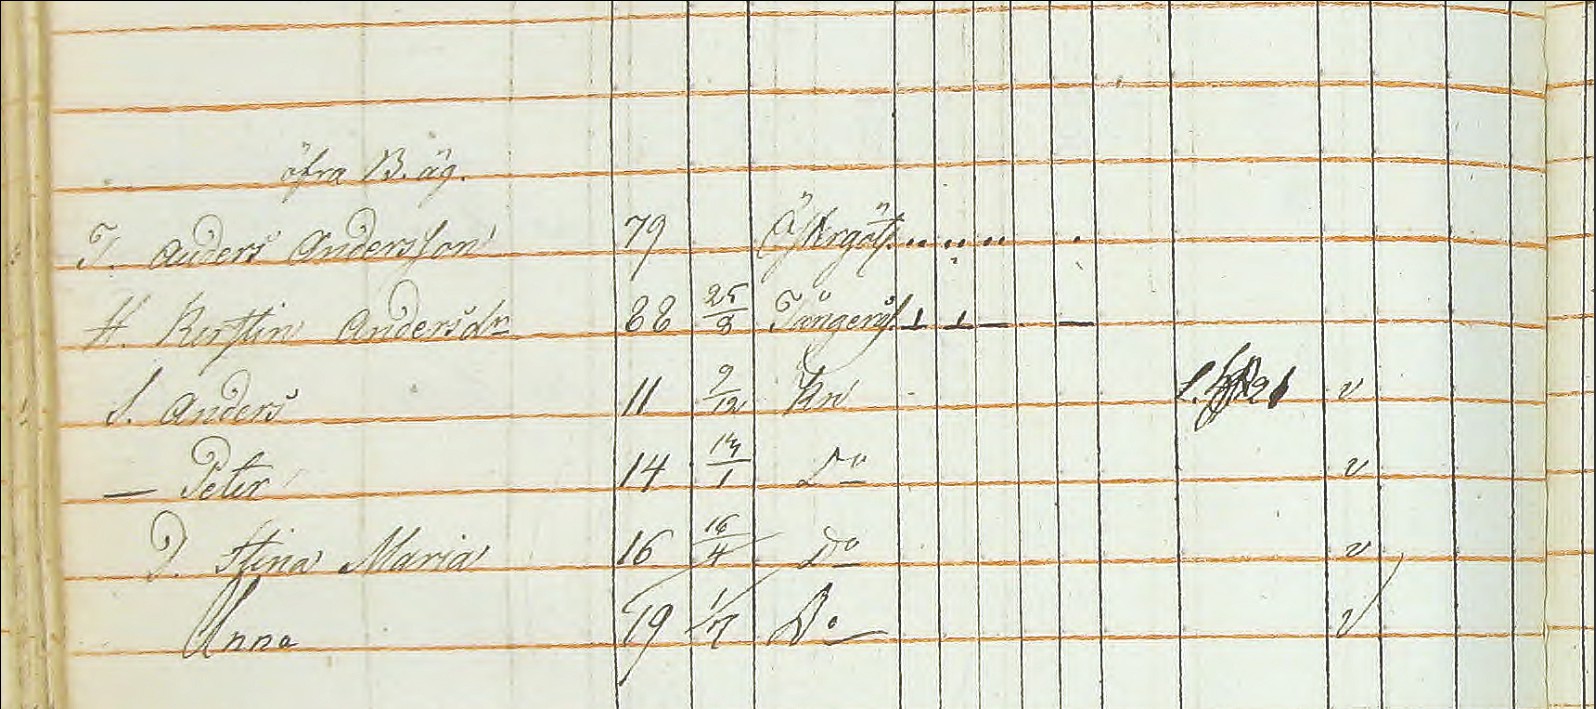 öfra B. äg.
T. Anders Andersson 79 Östergöt.
H. Kerstin Andersdr 88 25/8
S. Anders 11 9/12 Kn v
— Peter 14 13/1 Do v
D. Stina Maria 16 16/4 Do v
Anna 19 1/7 Do v